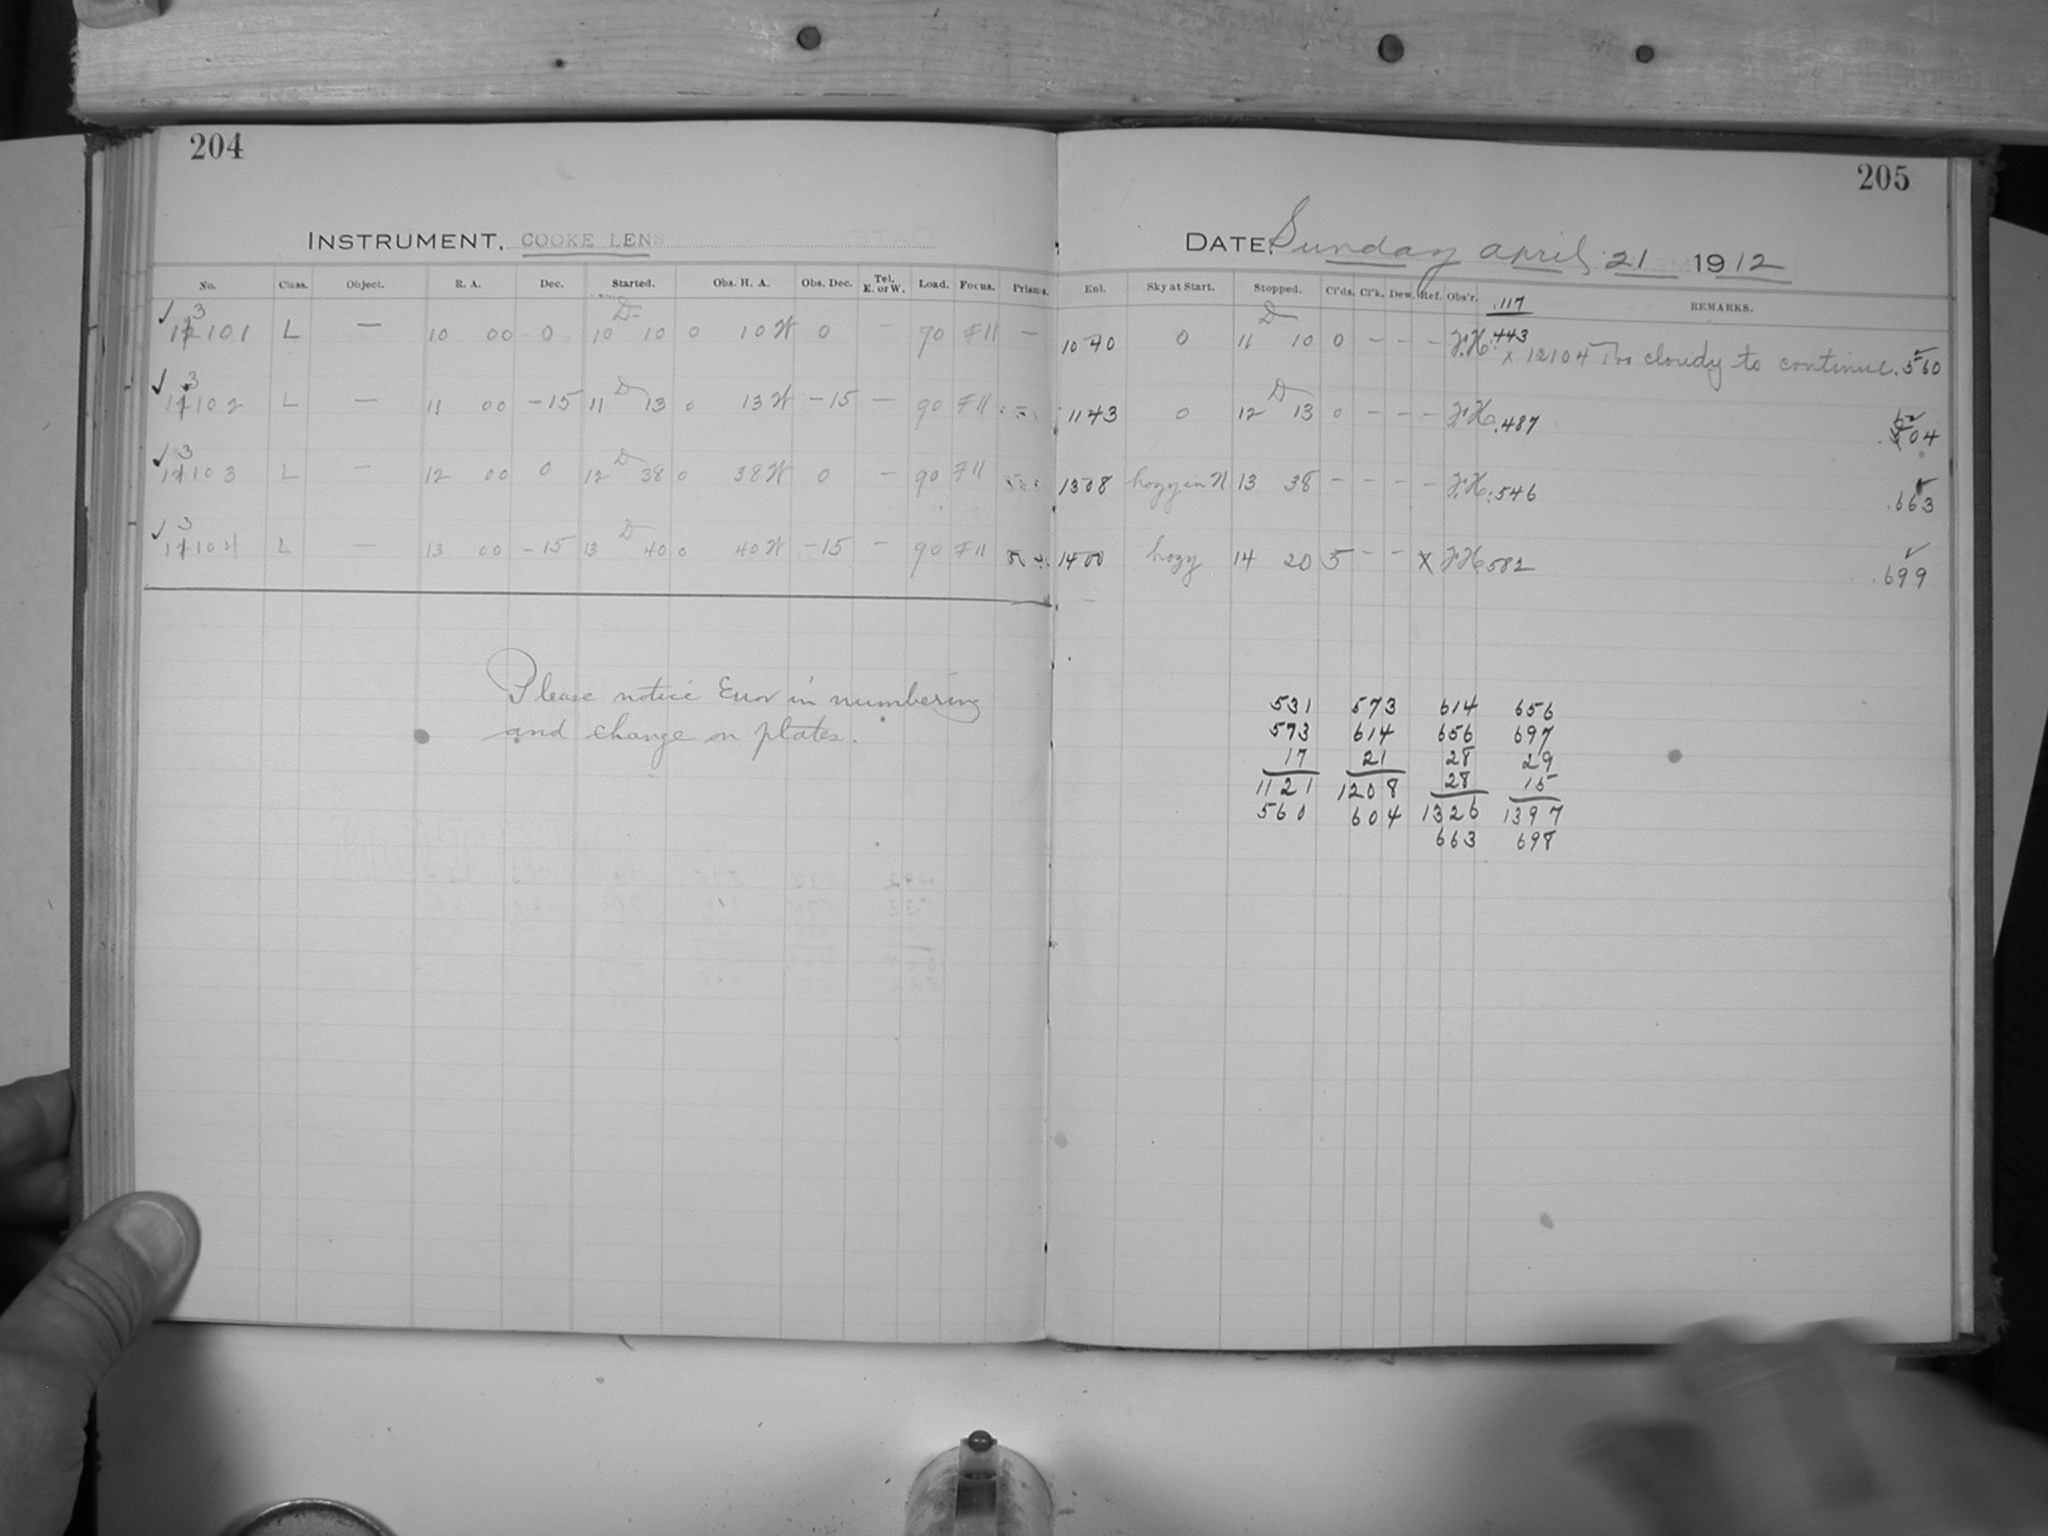 204
205
INSTRUMENT, COOKE LENS
DATE, Sunday April 21 1912
No. Class. Object. R. A. Dec. Started. Obs. H. A. Obs. Dec. Tel. E. or W. Load. Focus. Prisms. Enl. Sky at Start. Stopped. Cl'ds. Cl'k. Dew. Ref. Obs'r. .117 REMARKS.
L — 10 00 0 10 D 10 0 10 W 0 - 90 F11 — 10 40 0 11 D 10 0 - - - .443 x 12104 Too cloudy to continue. .560
L — 11 00 -15 11 D 13 0 13 W -15 — 90 F11 11 43 0 12 D 13 0 - - - .487 .604
L — 12 00 0 12 D 38 0 38 W 0 — 90 F11 13 08 13 38 - - - - .546 .663
L — 13 00 -15 13 D 40 0 40 W -15 — 90 F11 14 00 hazy 14 20 5 - - x .582 .699
Please notice Error in numbering
and change on plates.
531 573 614 656
573 614 656 697
17 21 28 29
1121 1208 28 15
560 604 1326 1397
663 698